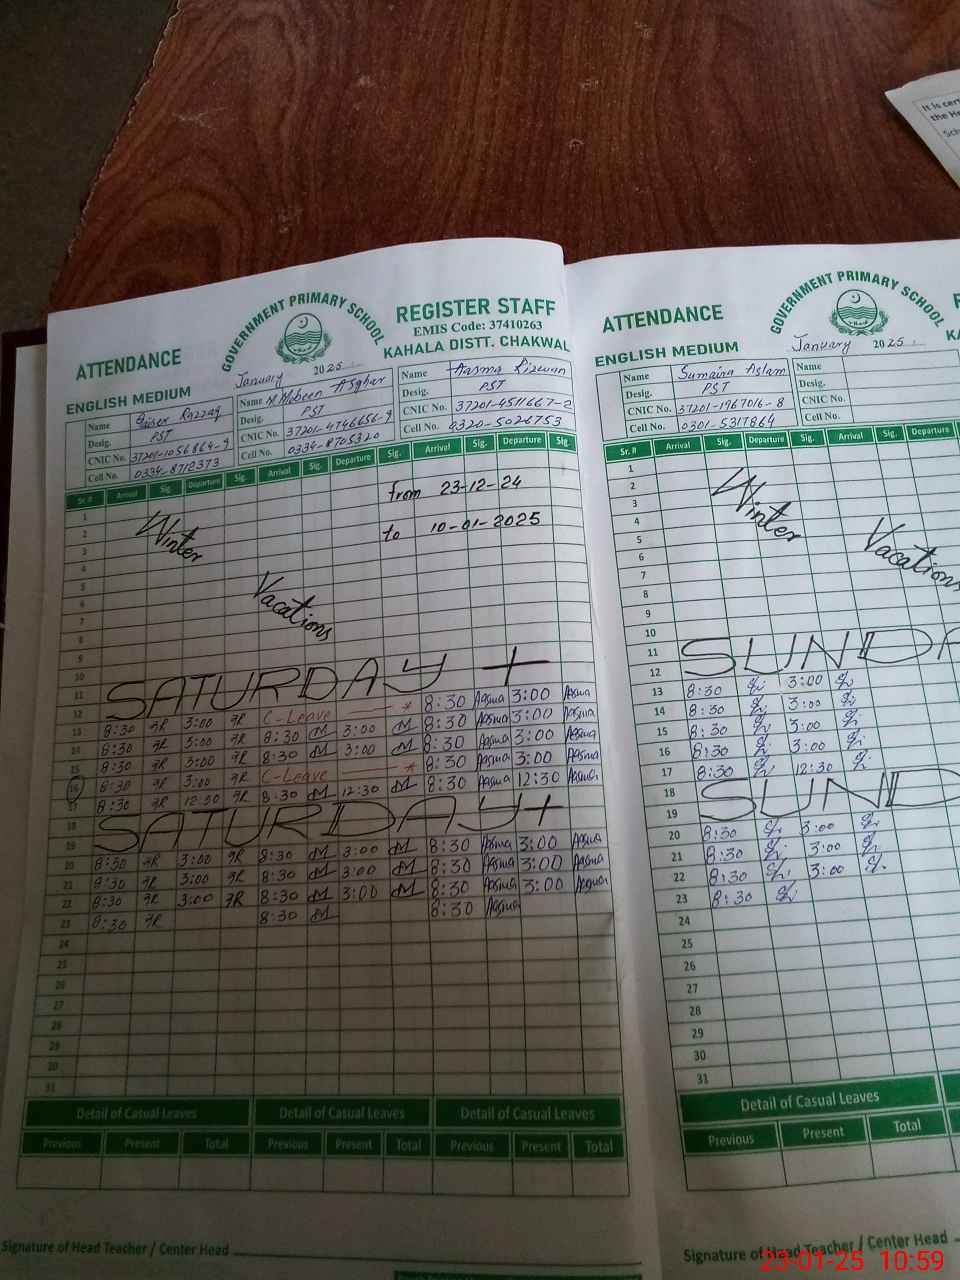 It is cert
the He
Sch
ATTENDANCE
GOVERNMENT PRIMARY SCHOOL
REGISTER STAFF
EMIS Code: 37410263
KAHALA DISTT. CHAKWAL
ENGLISH MEDIUM
January 2025
Name Qaiser Razzaq
Desig. PST
CNIC No. 37201-1056864-9
Cell No. 0334-8712373
Name M.Mobeen Asghar
Desig. PST
CNIC No. 37201-4746656-9
Cell No. 0334-8705320
Name Aasma Rizwan
Desig. PST
CNIC No. 37201-4511667-2
Cell No. 0320-5026753
Sr. # Arrival Sig. Departure Sig. Arrival Sig. Departure Sig. Arrival Sig. Departure Sig.
1
2
3
4
5
6
7
8
9
10
Winter
Vacations
from 23-12-24
to 10-01-2025
11
12
SATURDAY +
13 8:30 ZR 3:00 ZR C-Leave * 8:30 Aasma 3:00 Aasma
14 8:30 ZR 3:00 ZR 8:30 M 3:00 M 8:30 Aasma 3:00 Aasma
15 8:30 ZR 3:00 ZR 8:30 M 3:00 M 8:30 Aasma 3:00 Aasma
16 8:30 ZR 3:00 ZR C-Leave * 8:30 Aasma 3:00 Aasma
17 8:30 ZR 12:30 ZR 8:30 M 12:30 M 8:30 Aasma 12:30 Aasma
18
19
SATURDAY+
20 8:30 ZR 3:00 ZR 8:30 M 3:00 M 8:30 Aasma 3:00 Aasma
21 8:30 ZR 3:00 ZR 8:30 M 3:00 M 8:30 Aasma 3:00 Aasma
22 8:30 ZR 3:00 ZR 8:30 M 3:00 M 8:30 Aasma 3:00 Aasma
23 8:30 ZR 8:30 M 8:30 Aasma
24
25
26
27
28
29
30
31
Detail of Casual Leaves Detail of Casual Leaves Detail of Casual Leaves
Previous Present Total Previous Present Total Previous Present Total
Signature of Head Teacher / Center Head
ATTENDANCE
GOVERNMENT PRIMARY SCHOOL
ENGLISH MEDIUM
January 2025
KA
Name Sumaira Aslam
Desig. PST
CNIC No. 37201-1967016-8
Cell No. 0301-5317864
Name
Desig.
CNIC No.
Cell No.
Sr. # Arrival Sig. Departure Sig. Arrival Sig. Departure
1
2
3
4
5
6
7
8
9
10
Winter
Vacations
11
12
SUNDA
13 8:30 3:00
14 8:30 3:00
15 8:30 3:00
16 8:30 3:00
17 8:30 12:30
18
19
SUND
20 8:30 3:00
21 8:30 3:00
22 8:30 3:00
23 8:30
24
25
26
27
28
29
30
31
Detail of Casual Leaves
Previous Present Total
Signature of Head Teacher / Center Head
23-01-25 10:59